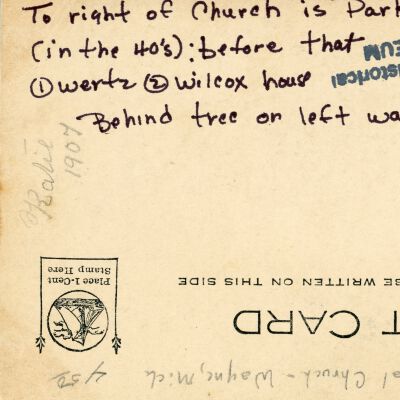 To right of Church is Park
(in the 40's): before that
① wertz ② wilcox house
Behind tree on left wa
Historical
EUM
Katie
1907
Place 1-Cent
Stamp Here
BE WRITTEN ON THIS SIDE
T CARD
al Church - Wayne, Mich